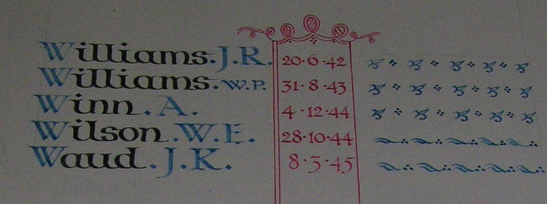 Williams. J.R. 20·6·42
Williams. W.P. 31·8·43
Winn. A. 4·12·44
Wilson. W.E. 28·10·44
Waud. J.K. 8·3·45